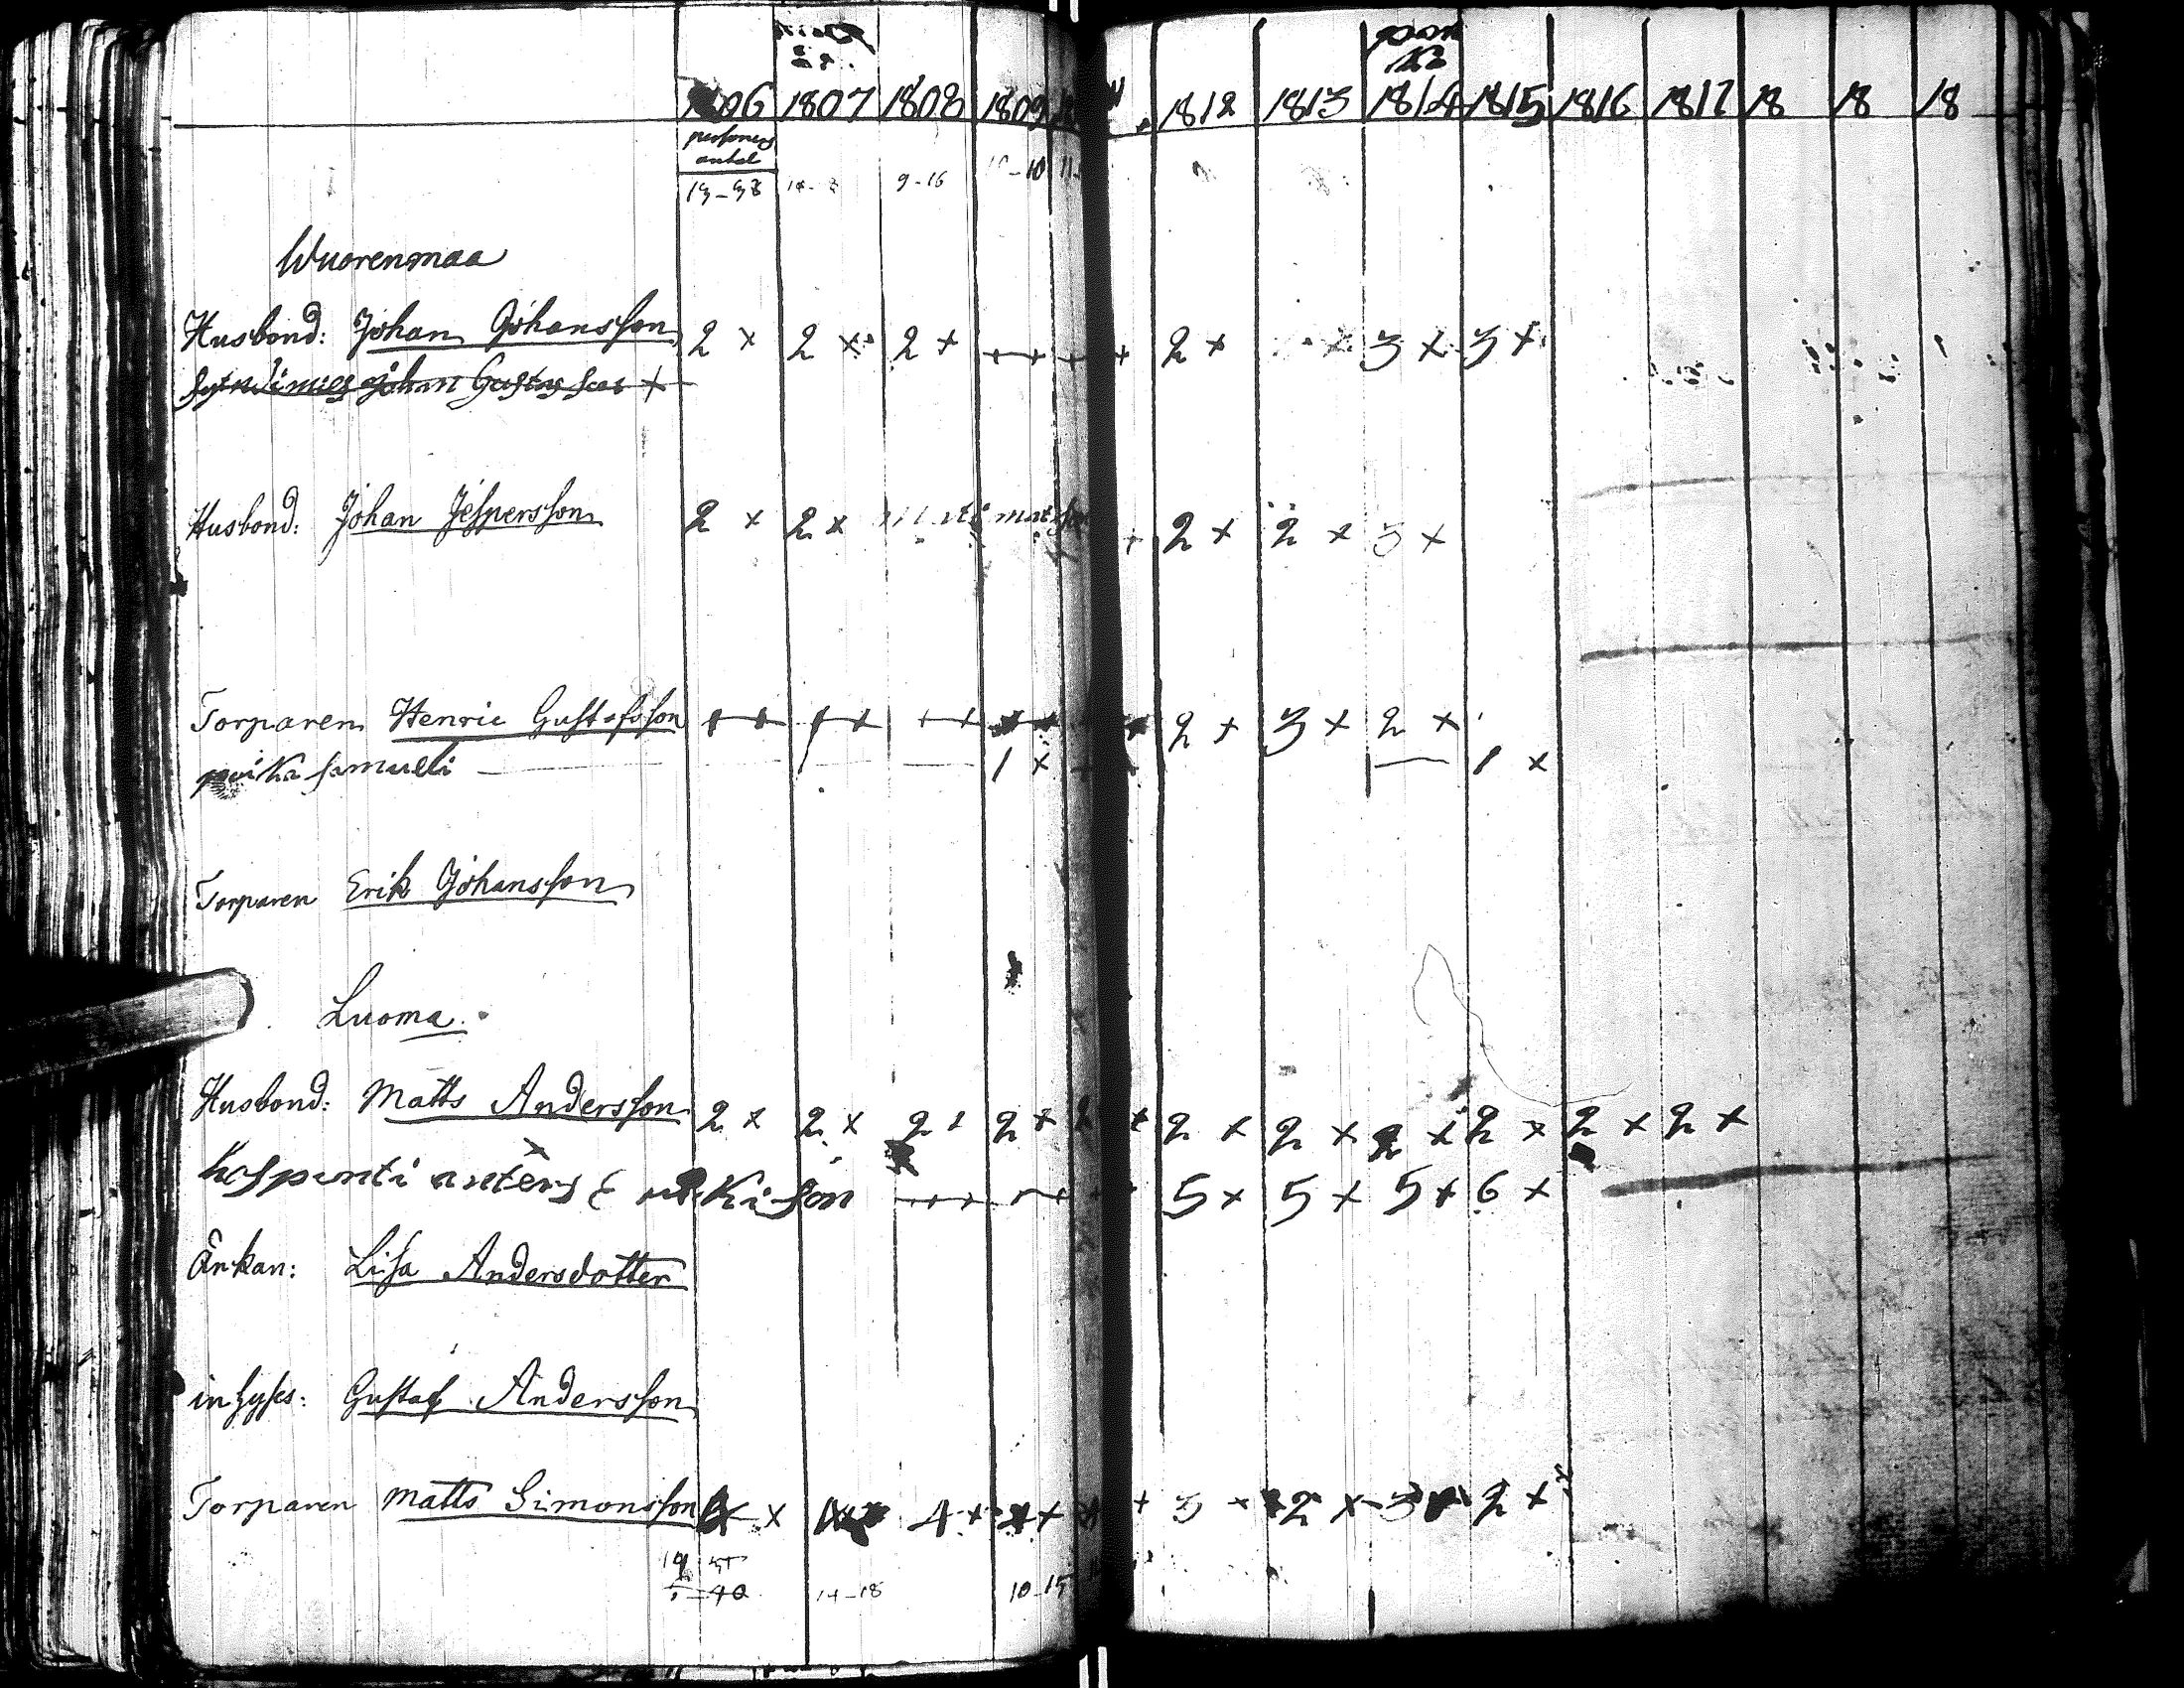 1806 1807 1808 1809 1812 1813 1814 1815 1816 1817 18 18 18
personers
antal
9-16 10
Wuorenmaa
Husbond: Johan Johansson 2 x 2 x 2 x 2 x 3 x 3 x
Johan Gustafsson x
Husbond: Johan Jespersson 2 x 2 x Matti matsson 2 x 2 x 3 x
Torparen Henric Gustafsson 2 x 3 x 2 x
poika samueli 1 x 1 x
Torparen Erik Johansson
Luoma.
Husbond: Matts Andersson 2 x 2 x 2 x 2 x 2 x 2 x 2 x 2 x 2 x 2 x
5 x 5 x 5 x 6 x
Änkan: Lisa Andersdotter
inhyses: Gustaf Andersson
Torparen Matts Simonsson x 4 x 3 x 2 x 3 2 x
14-18 10-15